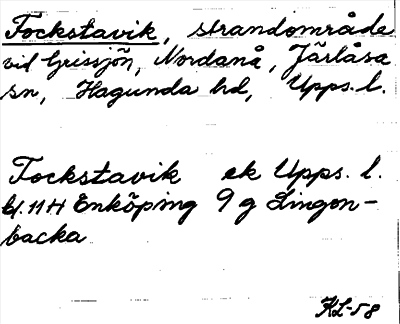 Fockstavik, strandområde
vid Grissjön, Nordanå, Järlåsa
sn, Hagunda hd, Upps. l.
Fockstavik ek Upps. l.
bl. 11 H Enköping 9 g Lingon-
backa
KL-58